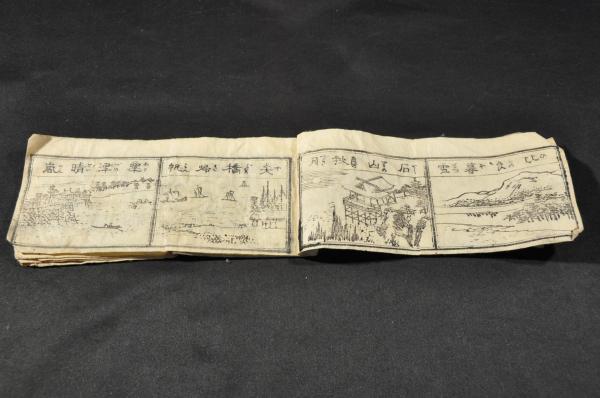 比良暮雪
石山秋月
矢橋帰帆
粟津晴嵐